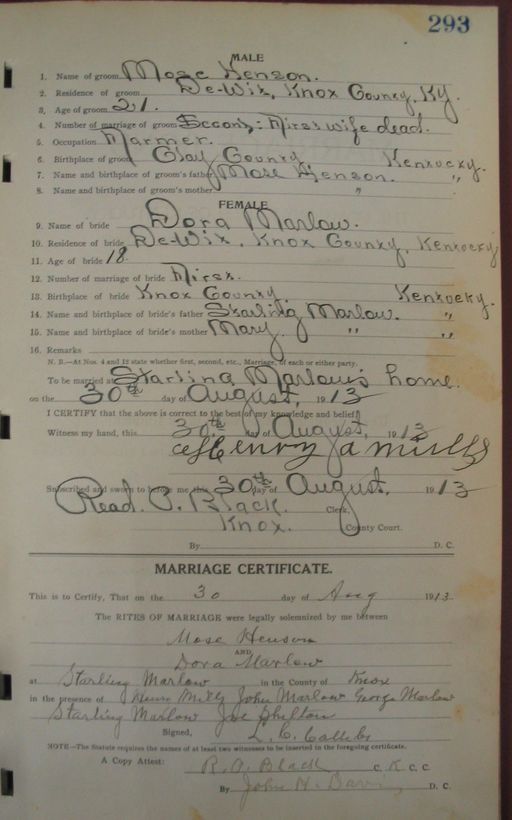 293
MALE
1. Name of groom Mose Henson.
2. Residence of groom De-Wit, Knox County, Ky.
3. Age of groom 21.
4. Number of marriage of groom Second: First wife dead.
5. Occupation Farmer.
6. Birthplace of groom Clay County Kentucky.
7. Name and birthplace of groom's father Mose Henson. "
8. Name and birthplace of groom's mother "
FEMALE
9. Name of bride Dora Marlow.
10. Residence of bride De-Wit, Knox County, Kentucky
11. Age of bride 18
12. Number of marriage of bride First.
13. Birthplace of bride Knox County. Kentucky.
14. Name and birthplace of bride's father Starling Marlow. "
15. Name and birthplace of bride's mother Mary. " "
16. Remarks
N. B.—At Nos. 4 and 12 state whether first, second, etc., Marriage, of each or either party.
To be married at Starling Marlow's home.
on the 30th day of August, 1913
I CERTIFY that the above is correct to the best of my knowledge and belief
Witness my hand, this 30th day of August, 1913
Henry Mills
Subscribed and sworn to before me this 30th day of August, 1913
Read. Black. Clerk,
Knox. County Court.
By D. C.
MARRIAGE CERTIFICATE.
This is to Certify, That on the 30 day of Aug 1913
The RITES OF MARRIAGE were legally solemnized by me between
Mose Henson
AND
Dora Marlow
at Starling Marlow in the County of Knox
in the presence of Henry Mills John Marlow George Marlow
Starling Marlow Joe
Signed, L. C.
NOTE—The Statute requires the names of at least two witnesses to be inserted in the foregoing certificate.
A Copy Attest: R. A. Black C. K. C. C
By John H. Davis, D. C.